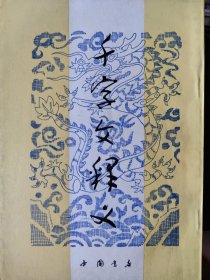 千字文释义
中国书店